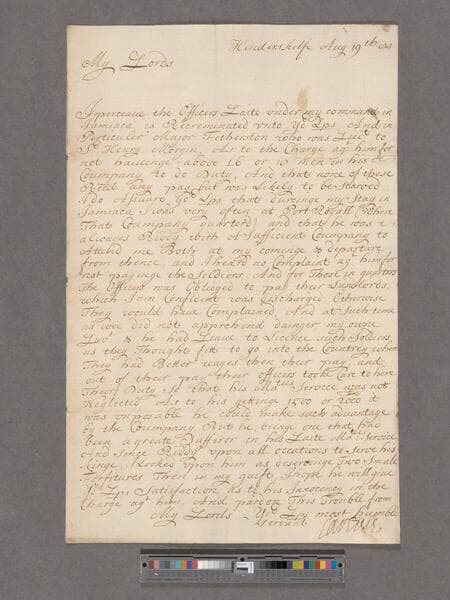 Hinderskelfe Aug 19th 84
My Lords
I perceave the Officers Laite under my command in
Jamiaca is Recremenated unto Yor Lps, And in
Perticuler Major Fetherston who was Lieut to
Sr Henry Morgin, As to the Charge agt him for
not haveinge above 16 or 18 men in his
Coumpany to do Duty, And that none of these
Reced any pay but was Likely to be starved
I do Assuare Yor Lps that dureinge my Stay in
Jamiaca I was very often at Port Royall, When
That Coumpany quarterd, and that he was
alwayes Reddy with A Sufficient Coumpany to
Attend me Both at my cominge & departure
from thence, and I heard no Complaint agt him for
not payinge the Soldiers, And for Those in quarters
The Officer was Obleged to pay their Landlords,
which I am Confident was discharged, Otherwise
They would have Complained, And at Such time
as wee did not apprehend dainger, my owne
Luut & he had Leave to Licence such Soldiers,
as they Thought fitt to go into the Countrey where
They had Better wages then their pay, and
out of their pay their officers tooke Care to here
Their Duty, So that his Maties Service was not
Neglected As to his gettinge 1500 or 2000 it
was unposable he could make such advantage
by the Coumpany, But he beinge one that had
been a greate Sufferer in his Laite Maties Service
And since Reddy upon all occations to serve his
Kinge, I looked upon him as deserveinge Two Small
Forfitures Then in my guift, I hope he will give
Yor Lps Satisfaction as to his Innocency in the
Charge agt him, And pardon This Trouble from
My Lords Yor Lps most humble
servant Carlisle